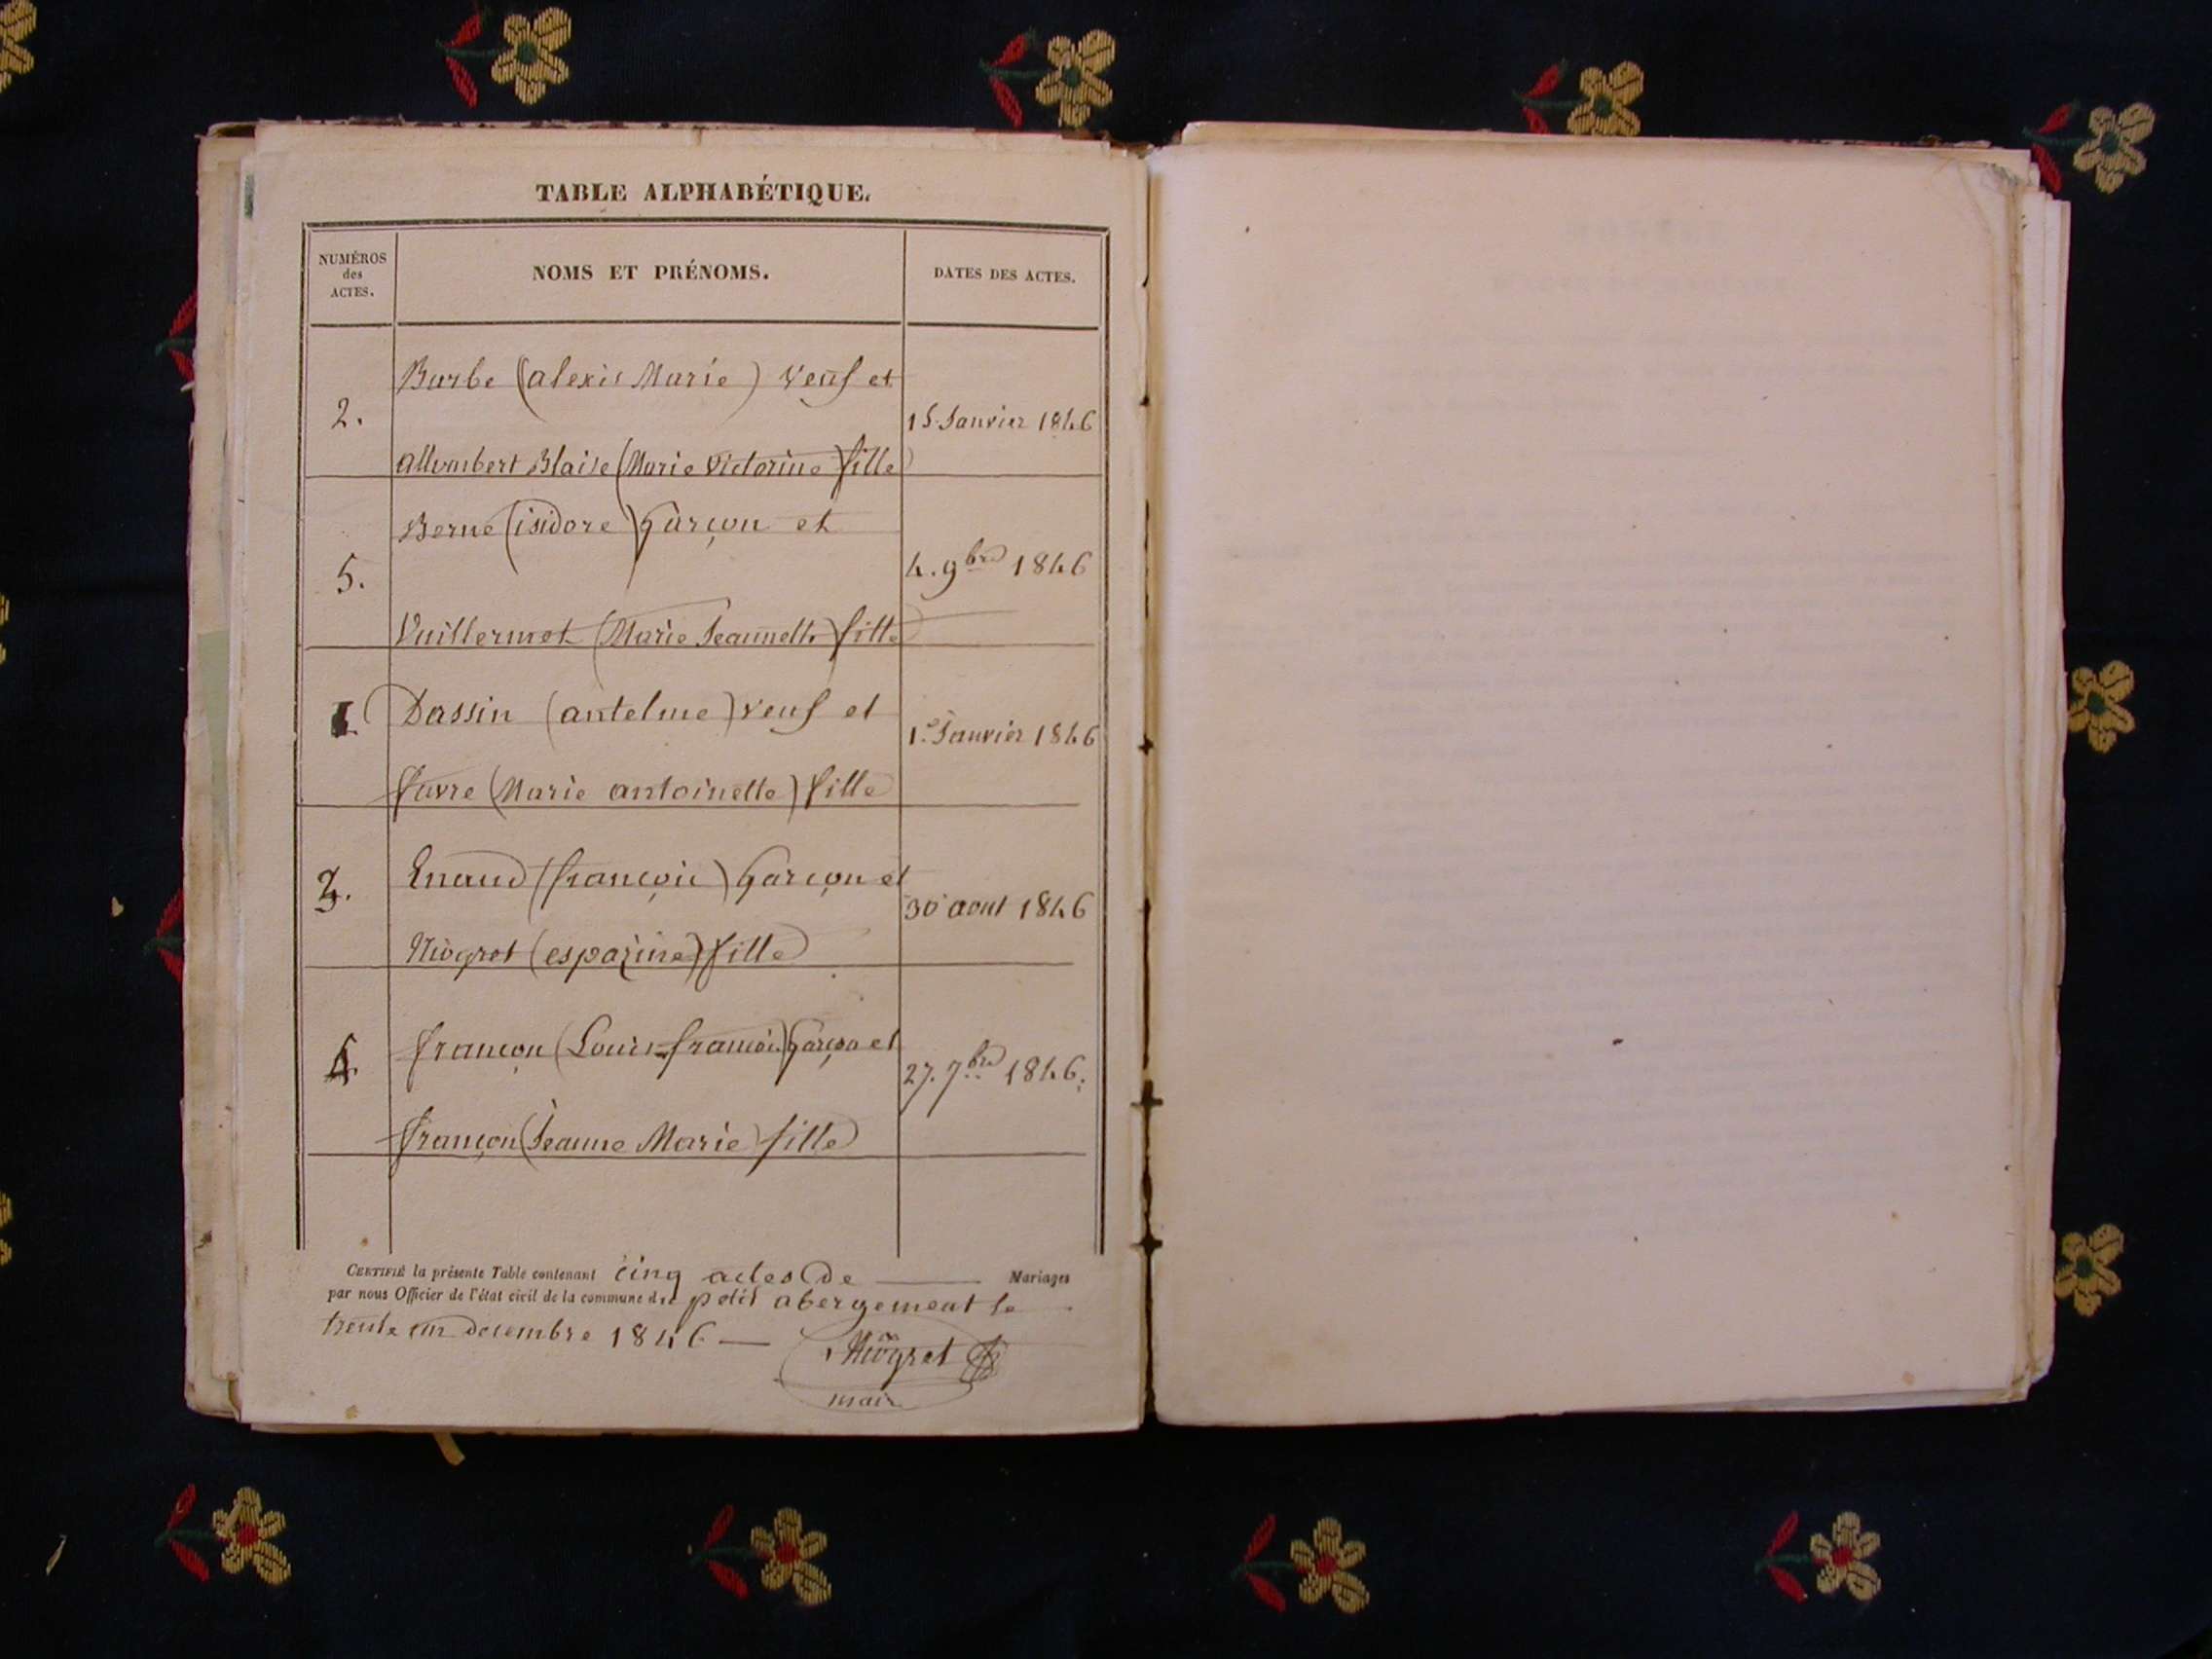 TABLE ALPHABÉTIQUE.
NUMÉROS
des
ACTES.
NOMS ET PRÉNOMS.
DATES DES ACTES.
Burbe (alexis Marie) veuf et
2.
15 Janvier 1846
allombert Blaise (Marie victorine) fille
Berne (isidore) Garçon et
5.
4. 9bre 1846
Vuillermot (Marie Jeannette) fille
1. Dassin (antelme) veuf et
1er Janvier 1846
favre (Marie antoinette) fille
Enaud (françois) Garçon et
3.
30 aout 1846
Niogret (esparine) fille
françon (Louis françois) Garçon et
4.
27. 7bre 1846.
françon (Jeanne Marie) fille
CERTIFIÉ la présente Table contenant cinq actes de Mariages
par nous Officier de l'état civil de la commune de petit abergement le
trente un decembre 1846
Niogret
maire